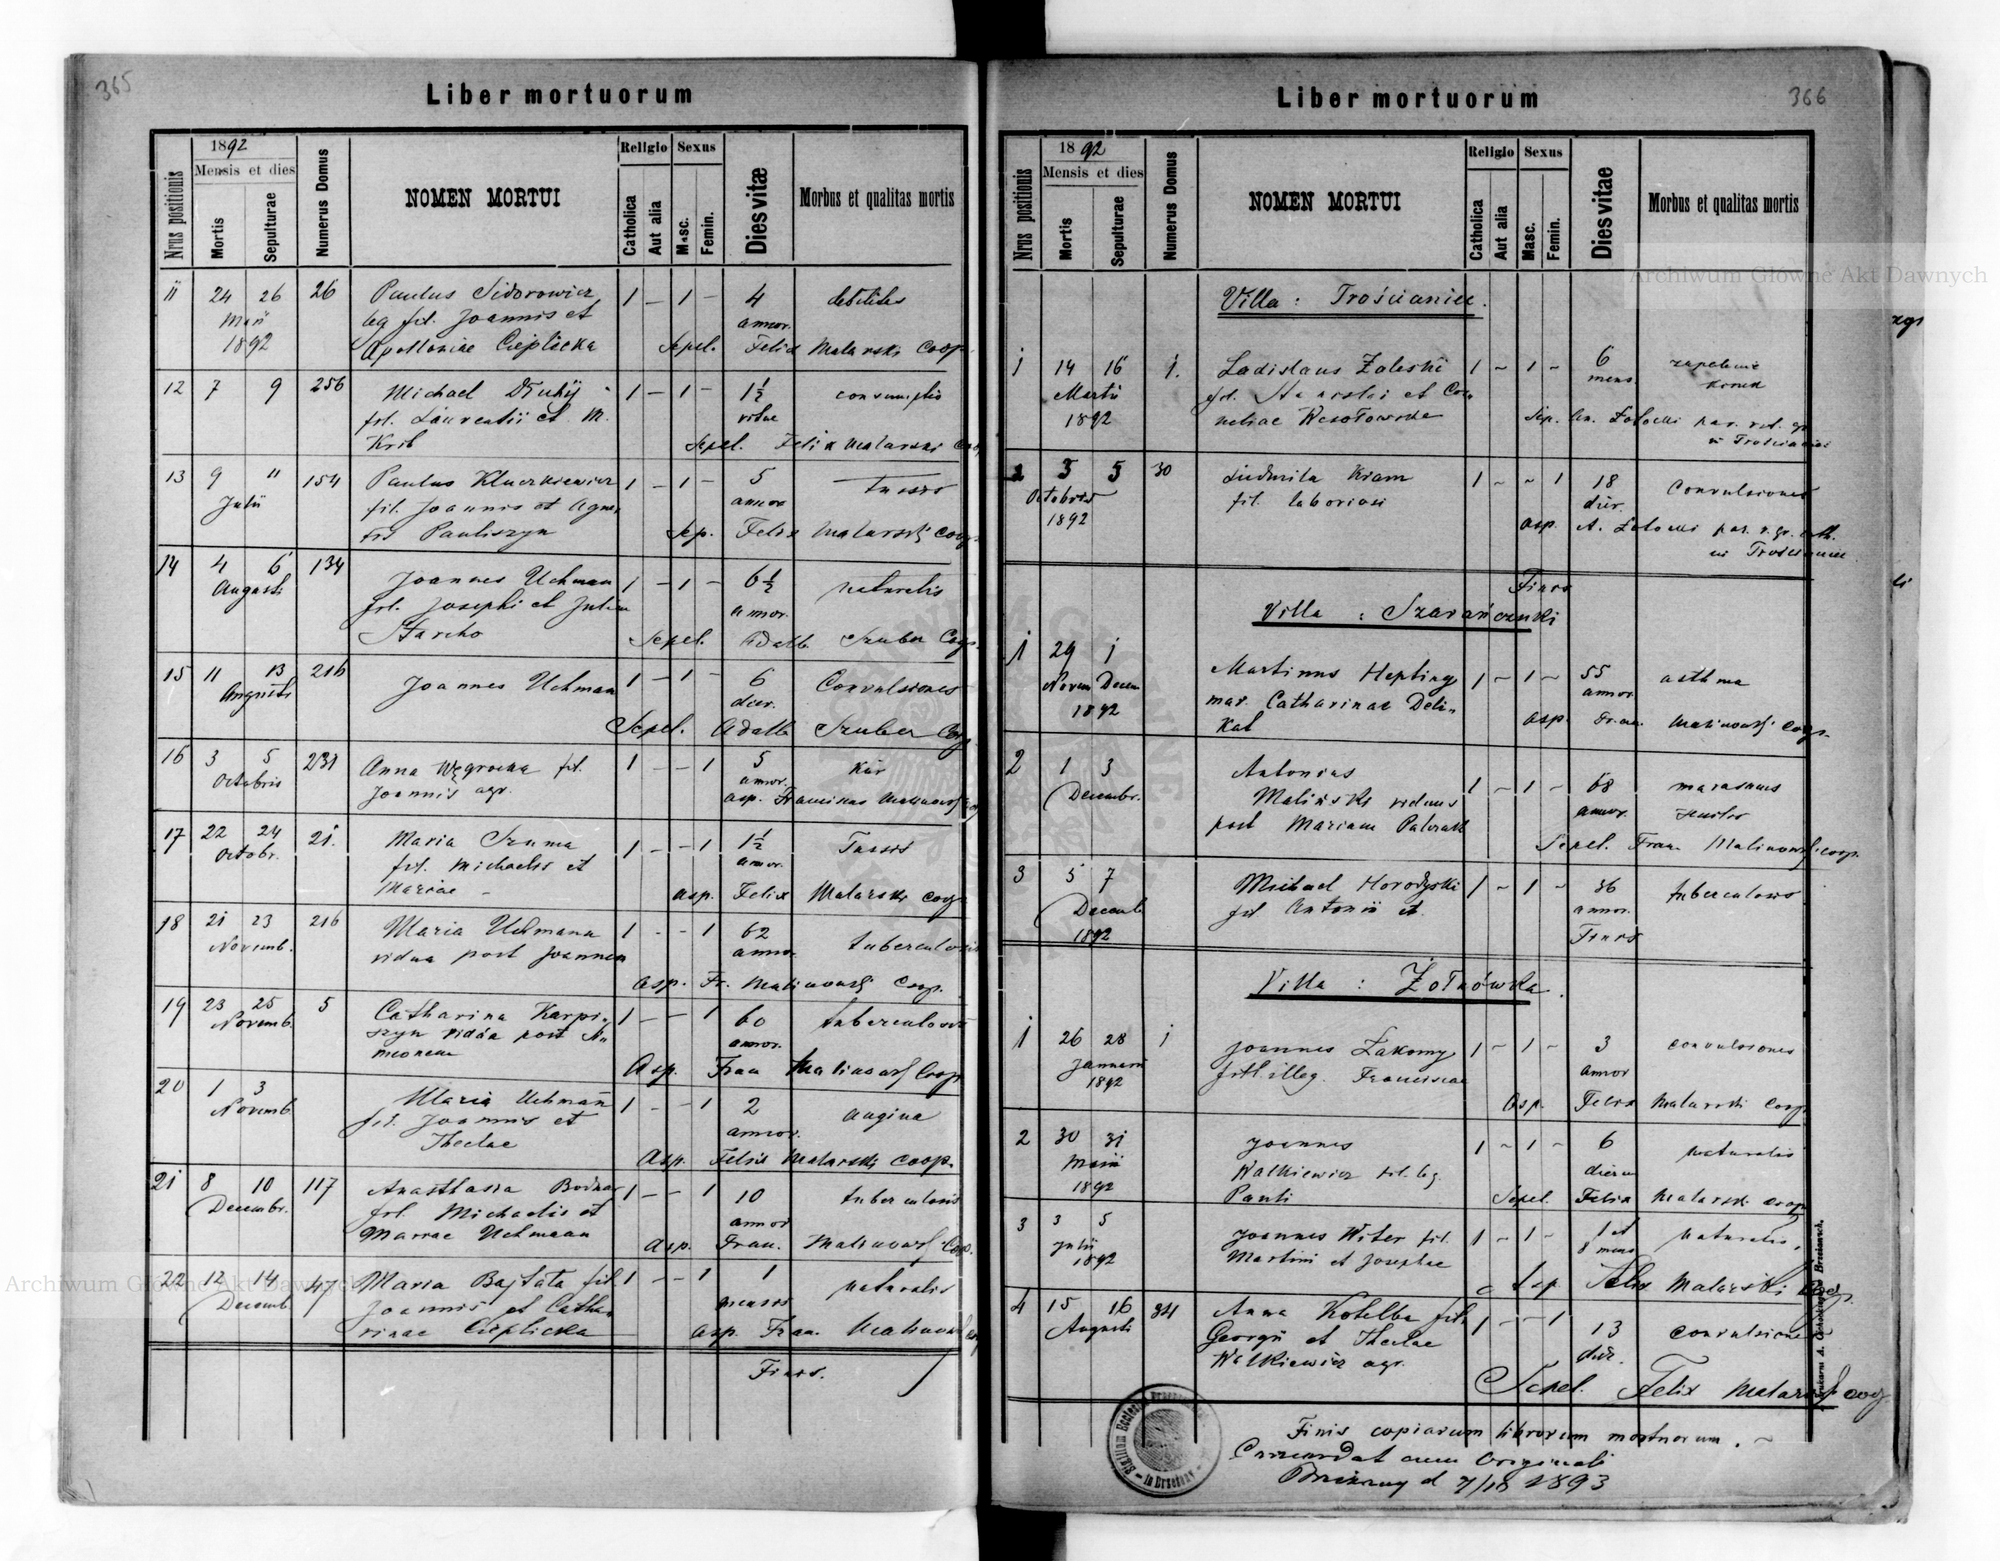 365
Liber mortuorum
Nrus positionis
1892
Mensis et dies
Mortis
Sepulturae
Numerus Domus
NOMEN MORTUI
Religio
Catholica
Aut alia
Sexus
Masc.
Femin.
Dies vitæ
Morbus et qualitas mortis
11 24 26 26 Paulus Sidorowicz 1 — 1 — 4 debilitas
Maii leg fil. Joannis et annor.
1892 Apolloniae Cieplicka Sepel. Felix Matarski Coop.
12 7 9 256 Michael 1 — 1 — 1½ consumptio
fil. Laurentii et M. vitae
Król Sepel. Felix Matarski
13 9 11 154 Paulus Kluczkiewicz 1 — 1 — 5 Tussis
Julii fil. Joannis et Agne- annor
tis Pauliszyn Sep. Felix Matarski Coop.
14 4 6 134 Joannes Uchman 1 — 1 — 6½ naturalis
Augusti fil. Josephi et Juliae annor.
Starcho Sepel. Adalb. Szuber Coop.
15 11 13 216 Joannes Uchman 1 — 1 — 6 Convulsiones
Augusti dier.
Sepel. Adalb Szuber Coop
16 3 5 231 Anna Węgrocka fil. 1 — — 1 5 Kür
Octobris Joannis agr. annor.
asp. Franciscus Malinowski
17 22 24 21. Maria Szuma 1 — — 1 1½ Tussis
Octobr. fil. Michaelis et annor.
Mariae – asp. Felix Matarski coop
18 21 23 216 Maria Uchmann 1 — — 1 62 tuberculosis
Novemb. vidua post Joannem annor.
asp. Fr. Malinowski Coop.
19 23 25 5 Catharina Karpi- 1 — — 1 60 tuberculosis
Novemb. szyn vidua post Si-
meonem annor.
Asp. Fran Malinowski Coop
20 1 3 Maria Uchmann 1 — — 1 2 angina
Novemb. fil. Joannis et annor.
Theclae Asp. Felix Matarski coop.
21 8 10 117 Anasthasia Bodnar 1 — — 1 10 tuberculosis
Decembr. fil. Michaelis et annor
Mariae Uchmann asp. Fran. Malinowski Coop.
22 12 14 47 Maria Bajtata fil 1 — — 1 1 naturalis
Decemb Joannis et Catha- mensis
rinae Cieplicka asp. Fran. Malinowski
Finis.
366
Liber mortuorum
Nrus positionis
1892
Mensis et dies
Mortis
Sepulturae
Numerus Domus
NOMEN MORTUI
Religio
Catholica
Aut alia
Sexus
Masc.
Femin.
Dies vitae
Morbus et qualitas mortis
Villa : Trościaniec.
1 14 16 1. Ladislaus Zaleski 1 ~ 1 ~ 6 zapalenie
Martii fil. Stanislai et Cor- mens.
1892 neliae Wesołowska Sep. An.
w Trościańcu
2 3 5 30 Ludmila Kram 1 ~ ~ 1 18 Convulsiones
Octobris fil. laboriosi dier.
1892 asp. A.
w Trościańcu
Finis
Villa : Szarańczuki
1 29 1 Martinus Hepting 1 ~ 1 ~ 55 asthma
Novem Decem mar. Catharinae Deli- annor
1892 kat asp. Fran. Malinowski Coop.
2 1 3 Antonius 1 ~ 1 ~ 68 marasmus
Decembr. Maliński viduus annor. senilis
post Mariam
Sepel. Fran. Malinowski coop.
3 5 7 Michael Horodyski 1 ~ 1 ~ 36 tuberculosis
Decemb fil Antonii et annor.
1892 Finis
Villa : Żołnówka.
1 26 28 1 Joannes Łakomy 1 ~ 1 ~ 3 convulsiones
Januarii fil. illeg. Franciscae annor
1892 Asp. Felix Matarski Coop
2 30 31 Joannes 1 ~ 1 ~ 6 naturalis
Maii Walkiewicz fil. leg. dierum
1892 Pauli Sepel. Felix Matarski coop
3 3 5 Joannes Witer fil. 1 ~ 1 ~ 1 et naturalis
Julii Martini et Josephae 8 mens
1892 Asp Felix Matarski Coop.
4 15 16 34 Anna Kotelba fil. 1 — — 1 13 convulsiones
Augusti Georgii et Theclae dier.
Walkiewicz agr.
Sepel. Felix Matarski coop
Finis copiarum librorum mortuorum. ~
Concordat cum Originali
Brzeżany d 7/18 1893
Archiwum Główne Akt Dawnych
Archiwum Główne Akt Dawnych